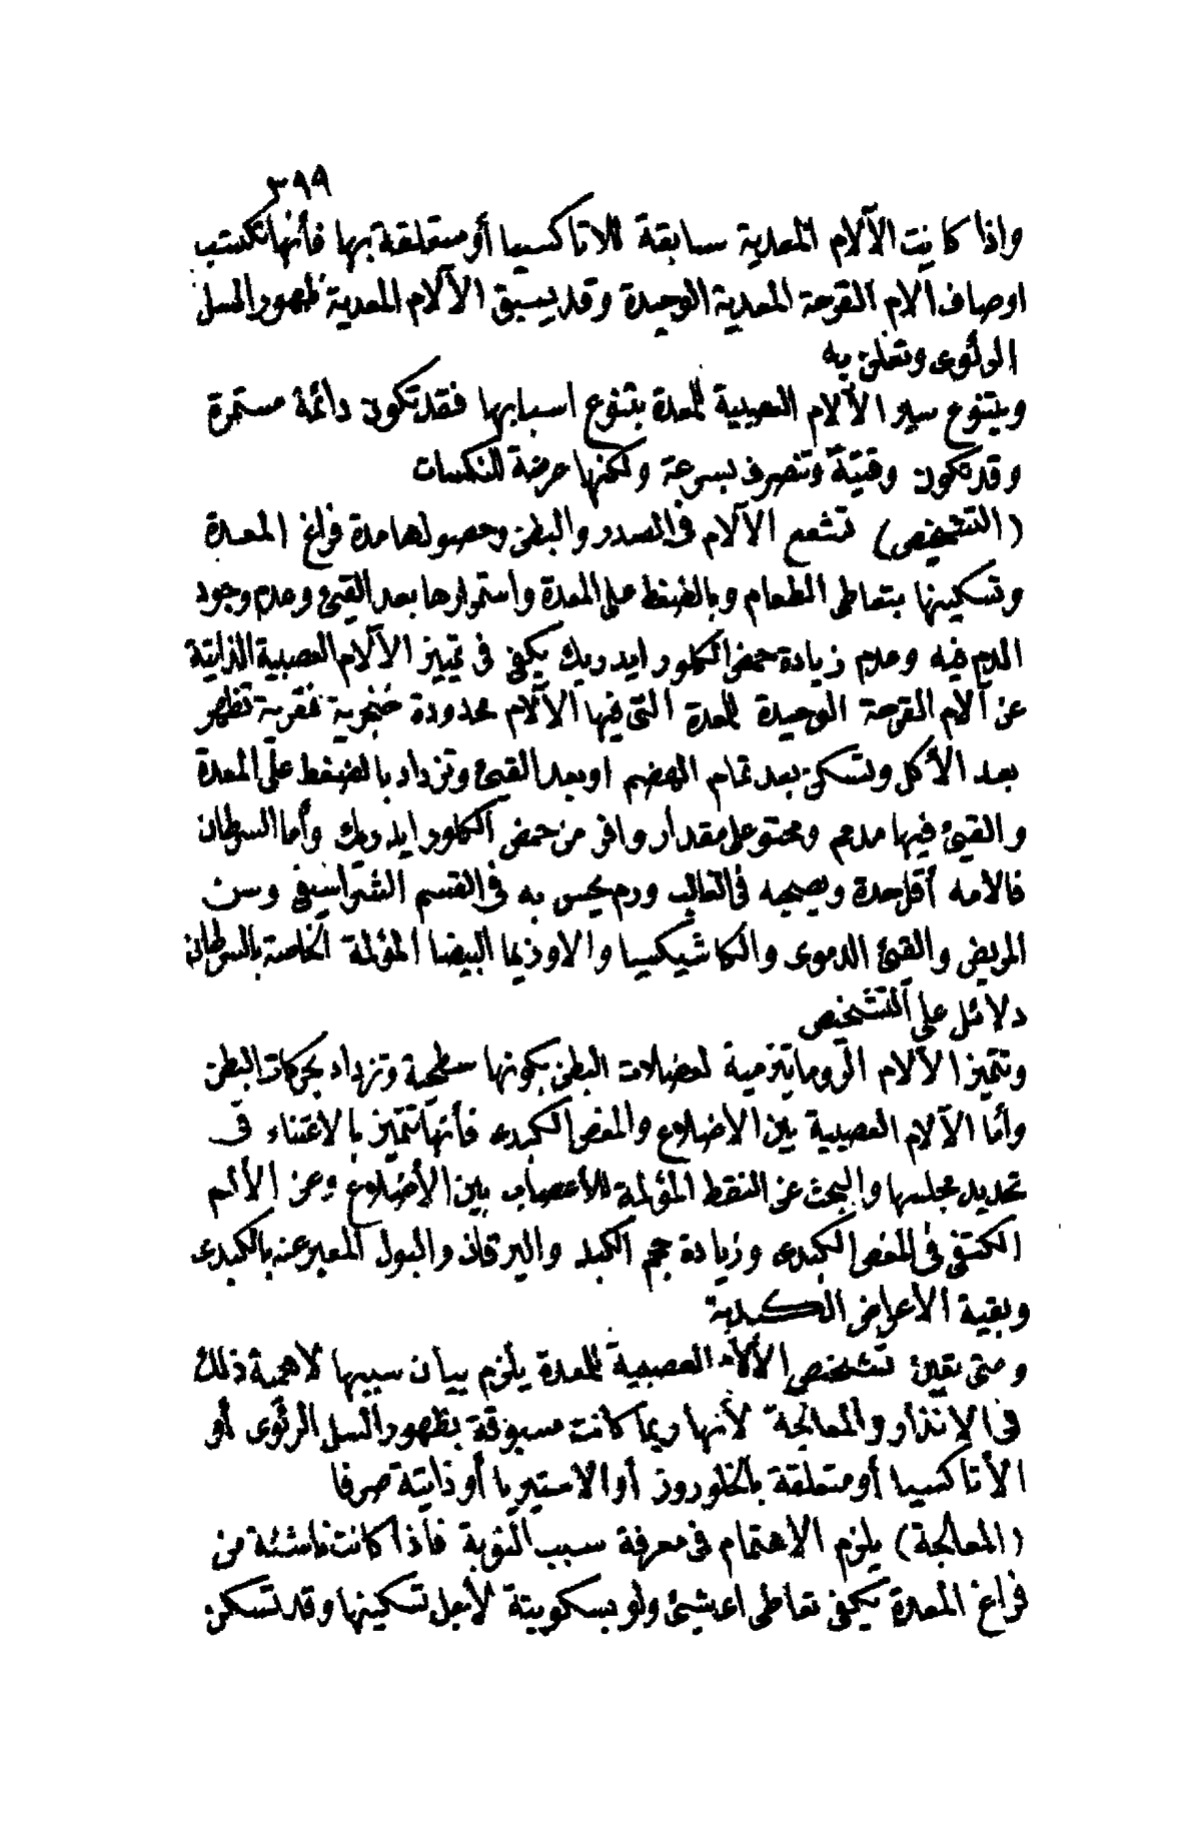 ٣٩٩
واذا كانت الآلام المعدية سابقة للاتاكسيا أو متعلقة بها فأنها تكتسب
اوصاف آلام القرحة المعدية الوحيدة وقد يسبق الآلام المعدية ظهور السل
الرئوى وتعلن به
ويتنوع سير الآلام العصبية للمعدة بتنوع اسبابها فقد تكون دائمة مستمرة
وقد تكون وقتية وتنصرف بسرعة ولكنها عرضة للنكسات
(التشخيص) تشعع الآلام فى الصدر والبطن وحصولها مدة فراغ المعدة
وتسكينها بتعاطى الطعام وبالضغط على المعدة واستمرارها بعد القيئ وعدم وجود
الدم فيه وعدم زيادة حمض الكلور ايدريك يكفى فى تمييز الآلام العصبية الذاتية
عن آلام القرحة الوحيدة للمعدة التى فيها الآلام محدودة خنجرية فقرية تظهر
بعد الأكل وتسكن بعد تمام الهضم اوبعد القيئ وتزداد بالضغط على المعدة
والقيئ فيها مدمم ومحتو على مقدار وافر من حمض الكلور ايدريك وأما السرطان
فالامه أقل حدة ويصحبه فى الغالب ورم يحس به فى القسم الشراسيفى وسن
المريض والقيئ الدموى والكاشيكسيا والاوزيما البيضا المؤلمة الخاصة بالسرطان
دلائل على التشخص
وتتميز الآلام الروماتيزمية لعضلات البطن بكونها سطحية وتزداد بحركات البطن
وأما الآلام العصبية بين الاضلاع والمغص الكبدى فأنها تتميز بالاعتناء فى
تحديد مجلسها والبحث عن النقط المؤلمة للأعصاب بين الأضلاع وعن الألم
الكتفى فى المغص الكبدى وزيادة حجم الكبد واليرقان والبول المعبر عنه بالكبدى
وبقية الاعراض الكبدية
ومتى تعين تشخص الألآم العصبية للمعدة يلزم بيان سببها لاهمية ذلك
فى الانذار والمعالجة لأنها ربما كانت مسبوقة بظهور السل الرئوى أو
الأتاكسيا أو متعلقة بالخلوروز أو الاستيريا أو ذاتية صرفا
(المعالجة) يلزم الاهتمام فى معرفة سبب النوبة فأذا كانت ناشئة من
فراغ المعدة يكفى تعاطى اى شيئ ولو بسكويتة لأجل تسكينها وقد تسكن